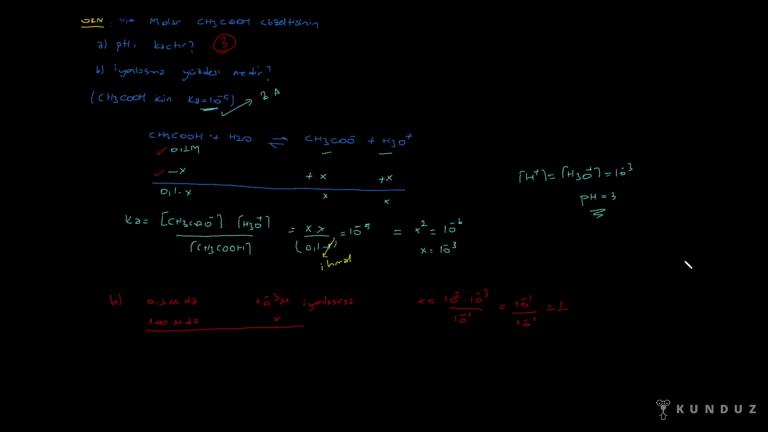 ÖRN: 0,1 Molar CH3COOH çözeltisinin
a) pH'ı kaçtır? 3
b) iyonlaşma yüzdesi nedir?
(CH3COOH için Ka=10^-5)
CH3COOH + H2O ⇌ CH3COO^- + H3O^+
0,1M
-x +x +x
0,1-x x x
[H^+]=[H3O^+]=10^-3
pH=3
Ka= [CH3COO^-] [H3O^+] / [CH3COOH] = x.x / (0,1-x) = 10^-5 = x^2 = 10^-6
x=10^-3
ihmal
b) 0,1M da 10^-3M iyonlaşırsa
100 M da x
x= 10^2.10^-3 / 10^-1 = 10^-1 / 10^-1 = 1
KUNDUZ